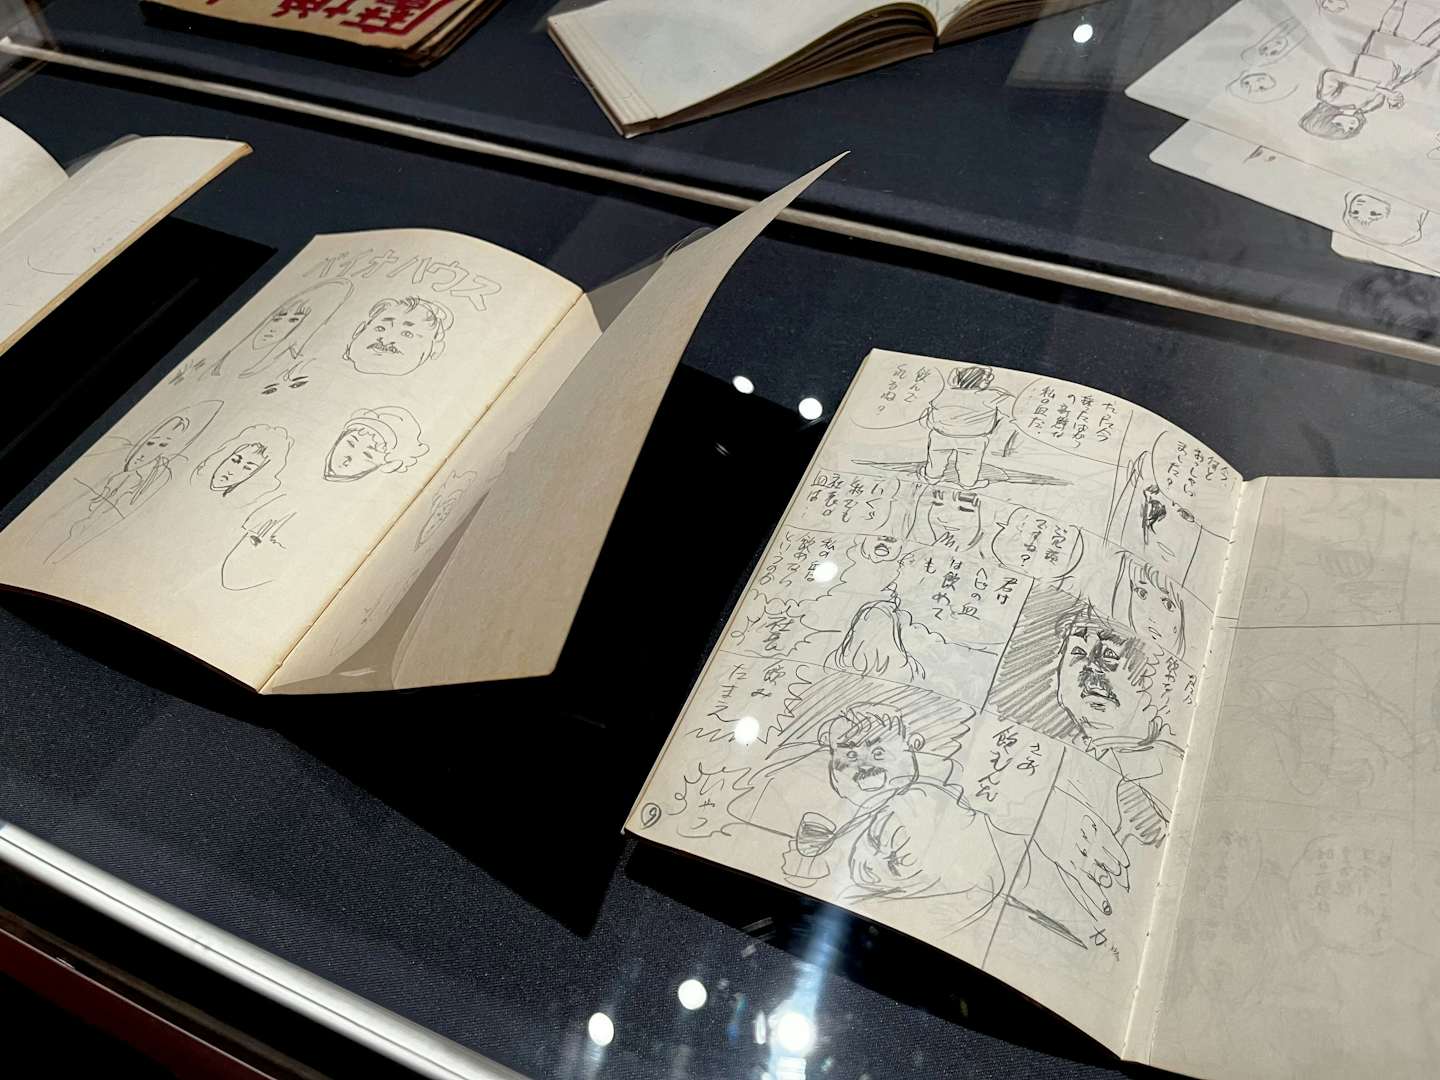 バイオハウス
今、
何と
おっしゃい
ました?
だから今
採ったばかり
の新鮮な
私の血だ.
飲んで
くれるね?
ご冗談
ですね?
いくら
私でも
社長の
血は…
君は
ヘビの血
は飲めて
も
私の血は
飲めない
というのか
社長
さあ
飲むんだ
飲み
たまえ
いやっ
9